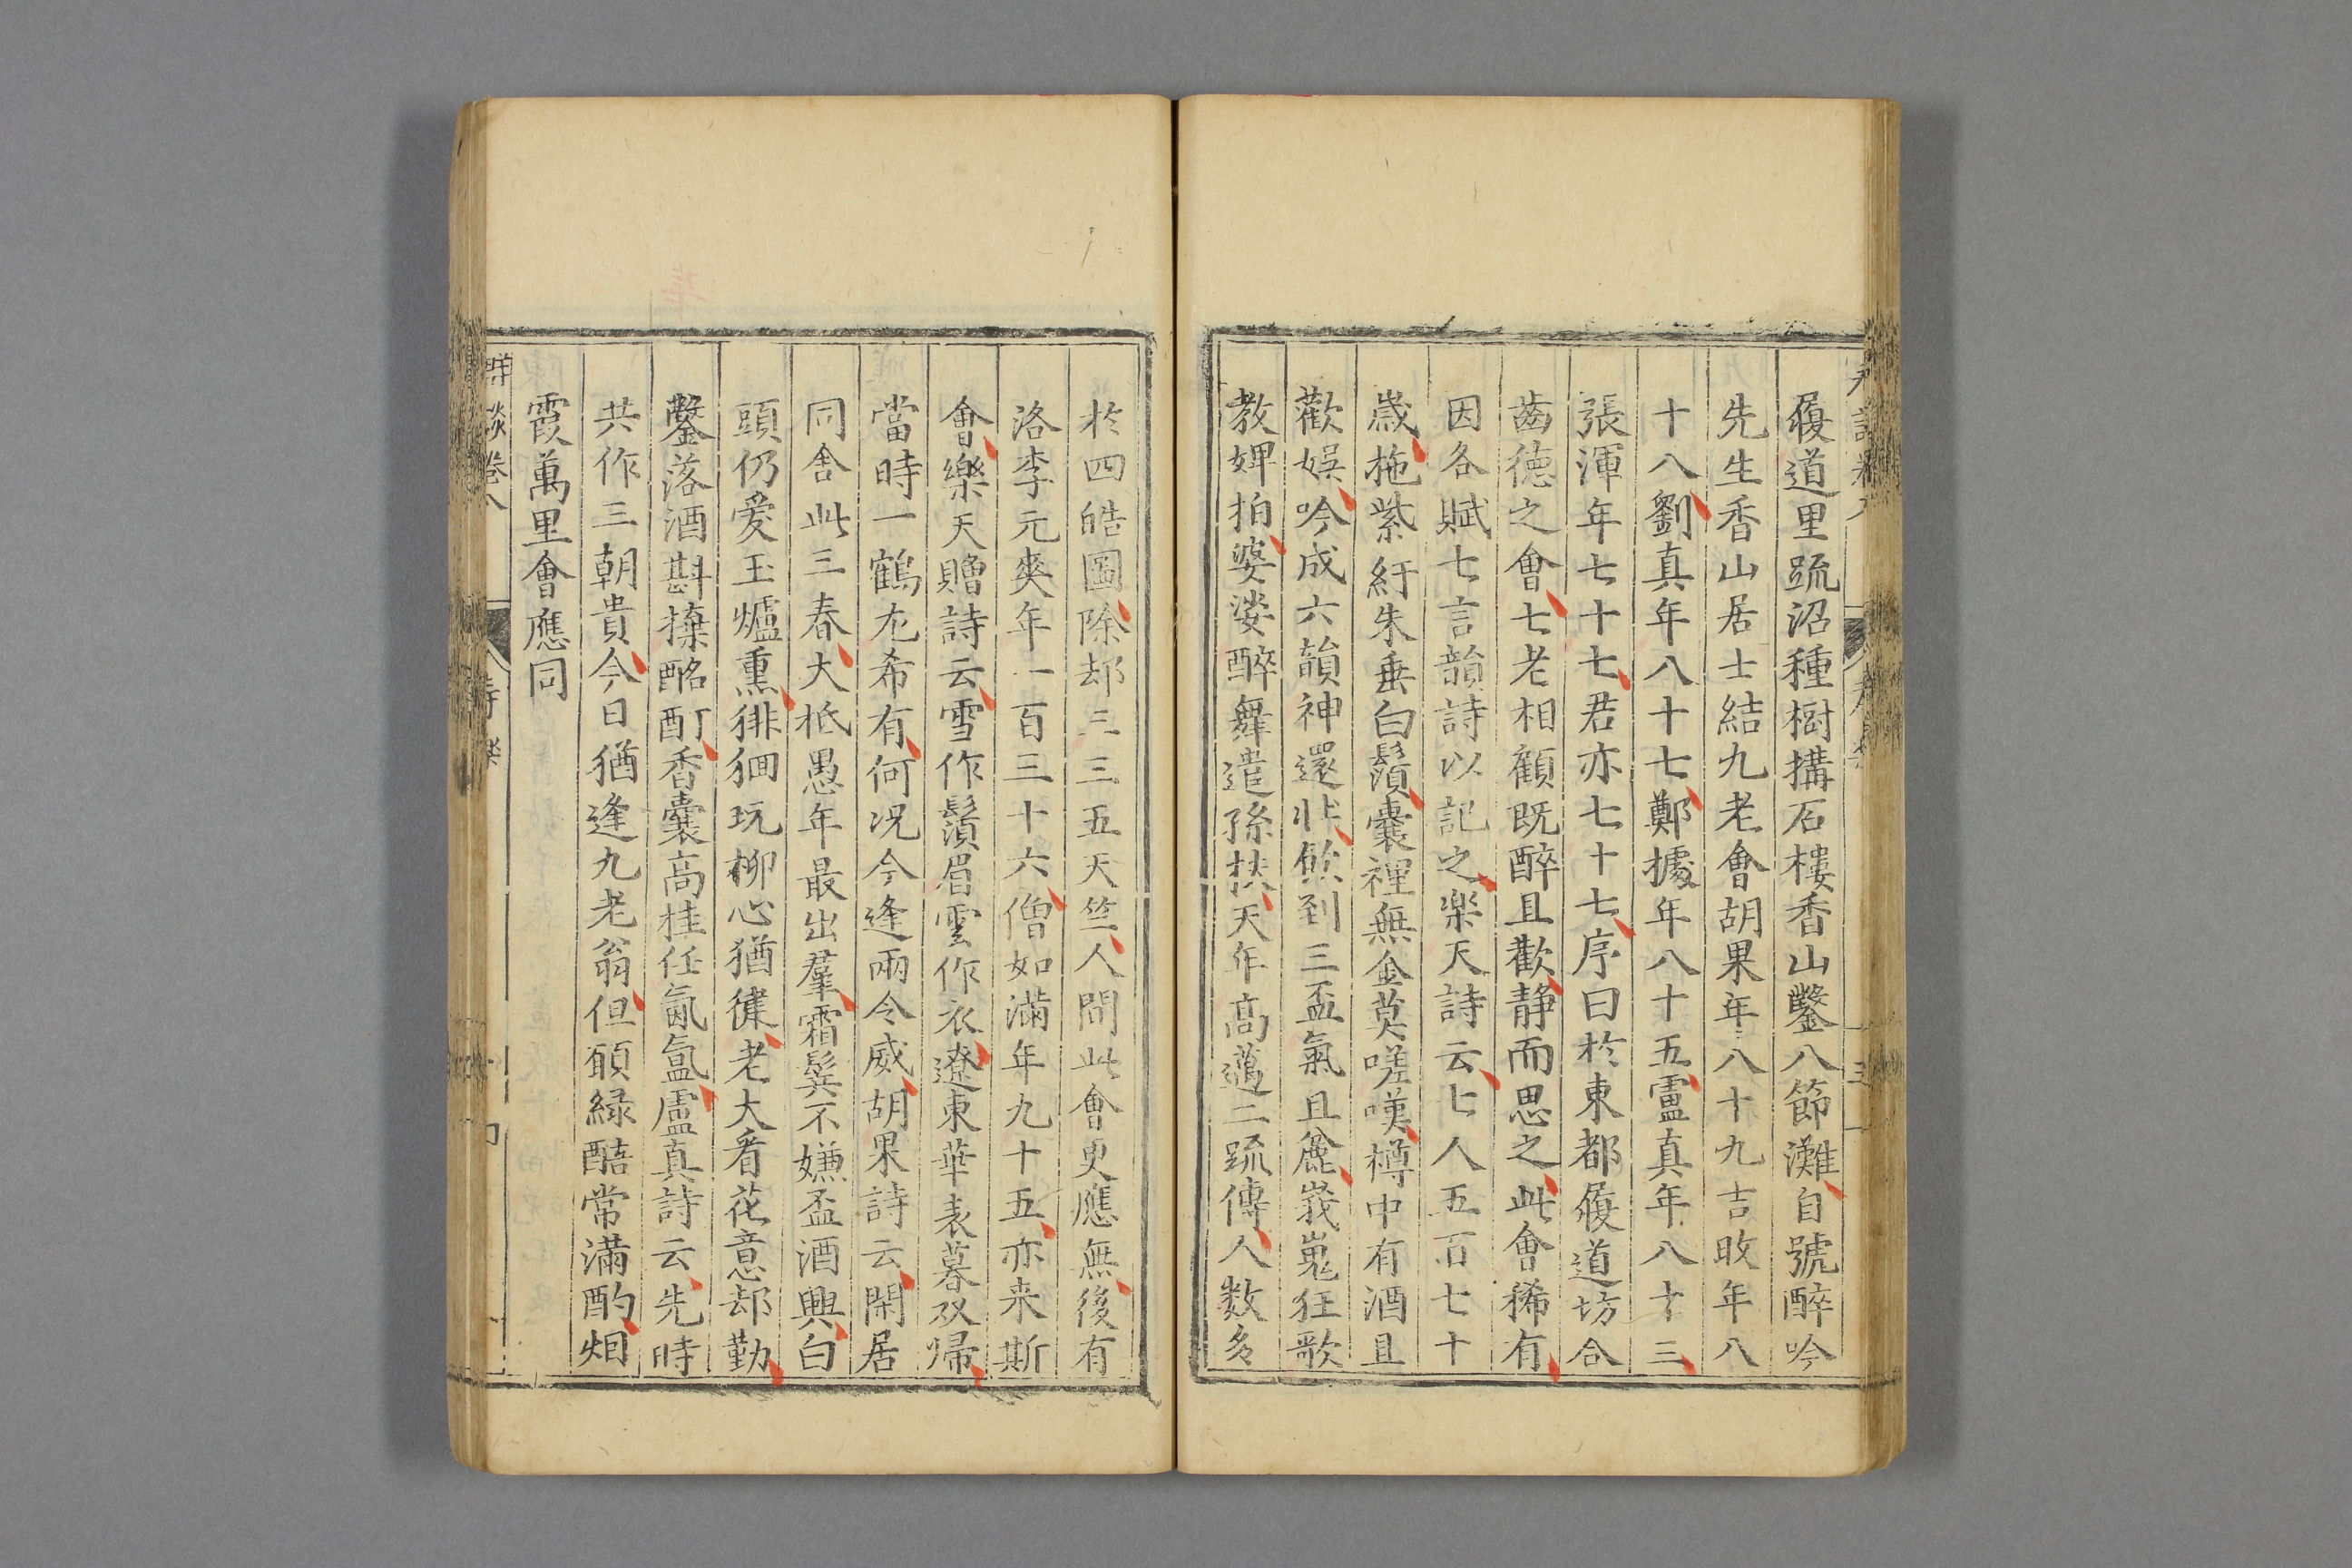 履道里䟽沼種樹搆石樓香山鑿八節灘自號醉吟
先生香山居士結九老會胡果年八十九吉旼年八
十八劉真年八十七鄭據年八十五盧真年八十三
張渾年七十七君亦七十七序曰於東都履道坊合
齒德之會七老相顧既醉且歡静而思之此會稀有
因各賦七言韻詩以記之樂天詩云七人五百七十
歲拖紫紆朱垂白鬚囊裡無金莫嗟嘆樽中有酒且
歡娛吟成六韻神還壯飲到三盃氣且麄峩嵬狂歌
教婢拍婆娑醉舞遣孫扶天年高邁二疏傳人数多
於四皓圖除却三三五天竺人間此會更應無後有
洛李元爽年一百三十六僧如滿年九十五亦来斯
會樂天贈詩云雪作鬚眉雲作衣遼東華表暮双歸
當時一鶴尤希有何况今逢兩令威胡果詩云閑居
同舍此三春大抵愚年最出羣霜鬓不嫌盃酒興白
頭仍爱玉爐熏徘徊玩柳心猶健老大看花意却勤
鑿落酒斟擽酩酊香囊高桂任氤氲盧真詩云先時
共作三朝貴今日猶逢九老翁但願緑醅常滿酌烟
霞萬里會應同
群談卷八